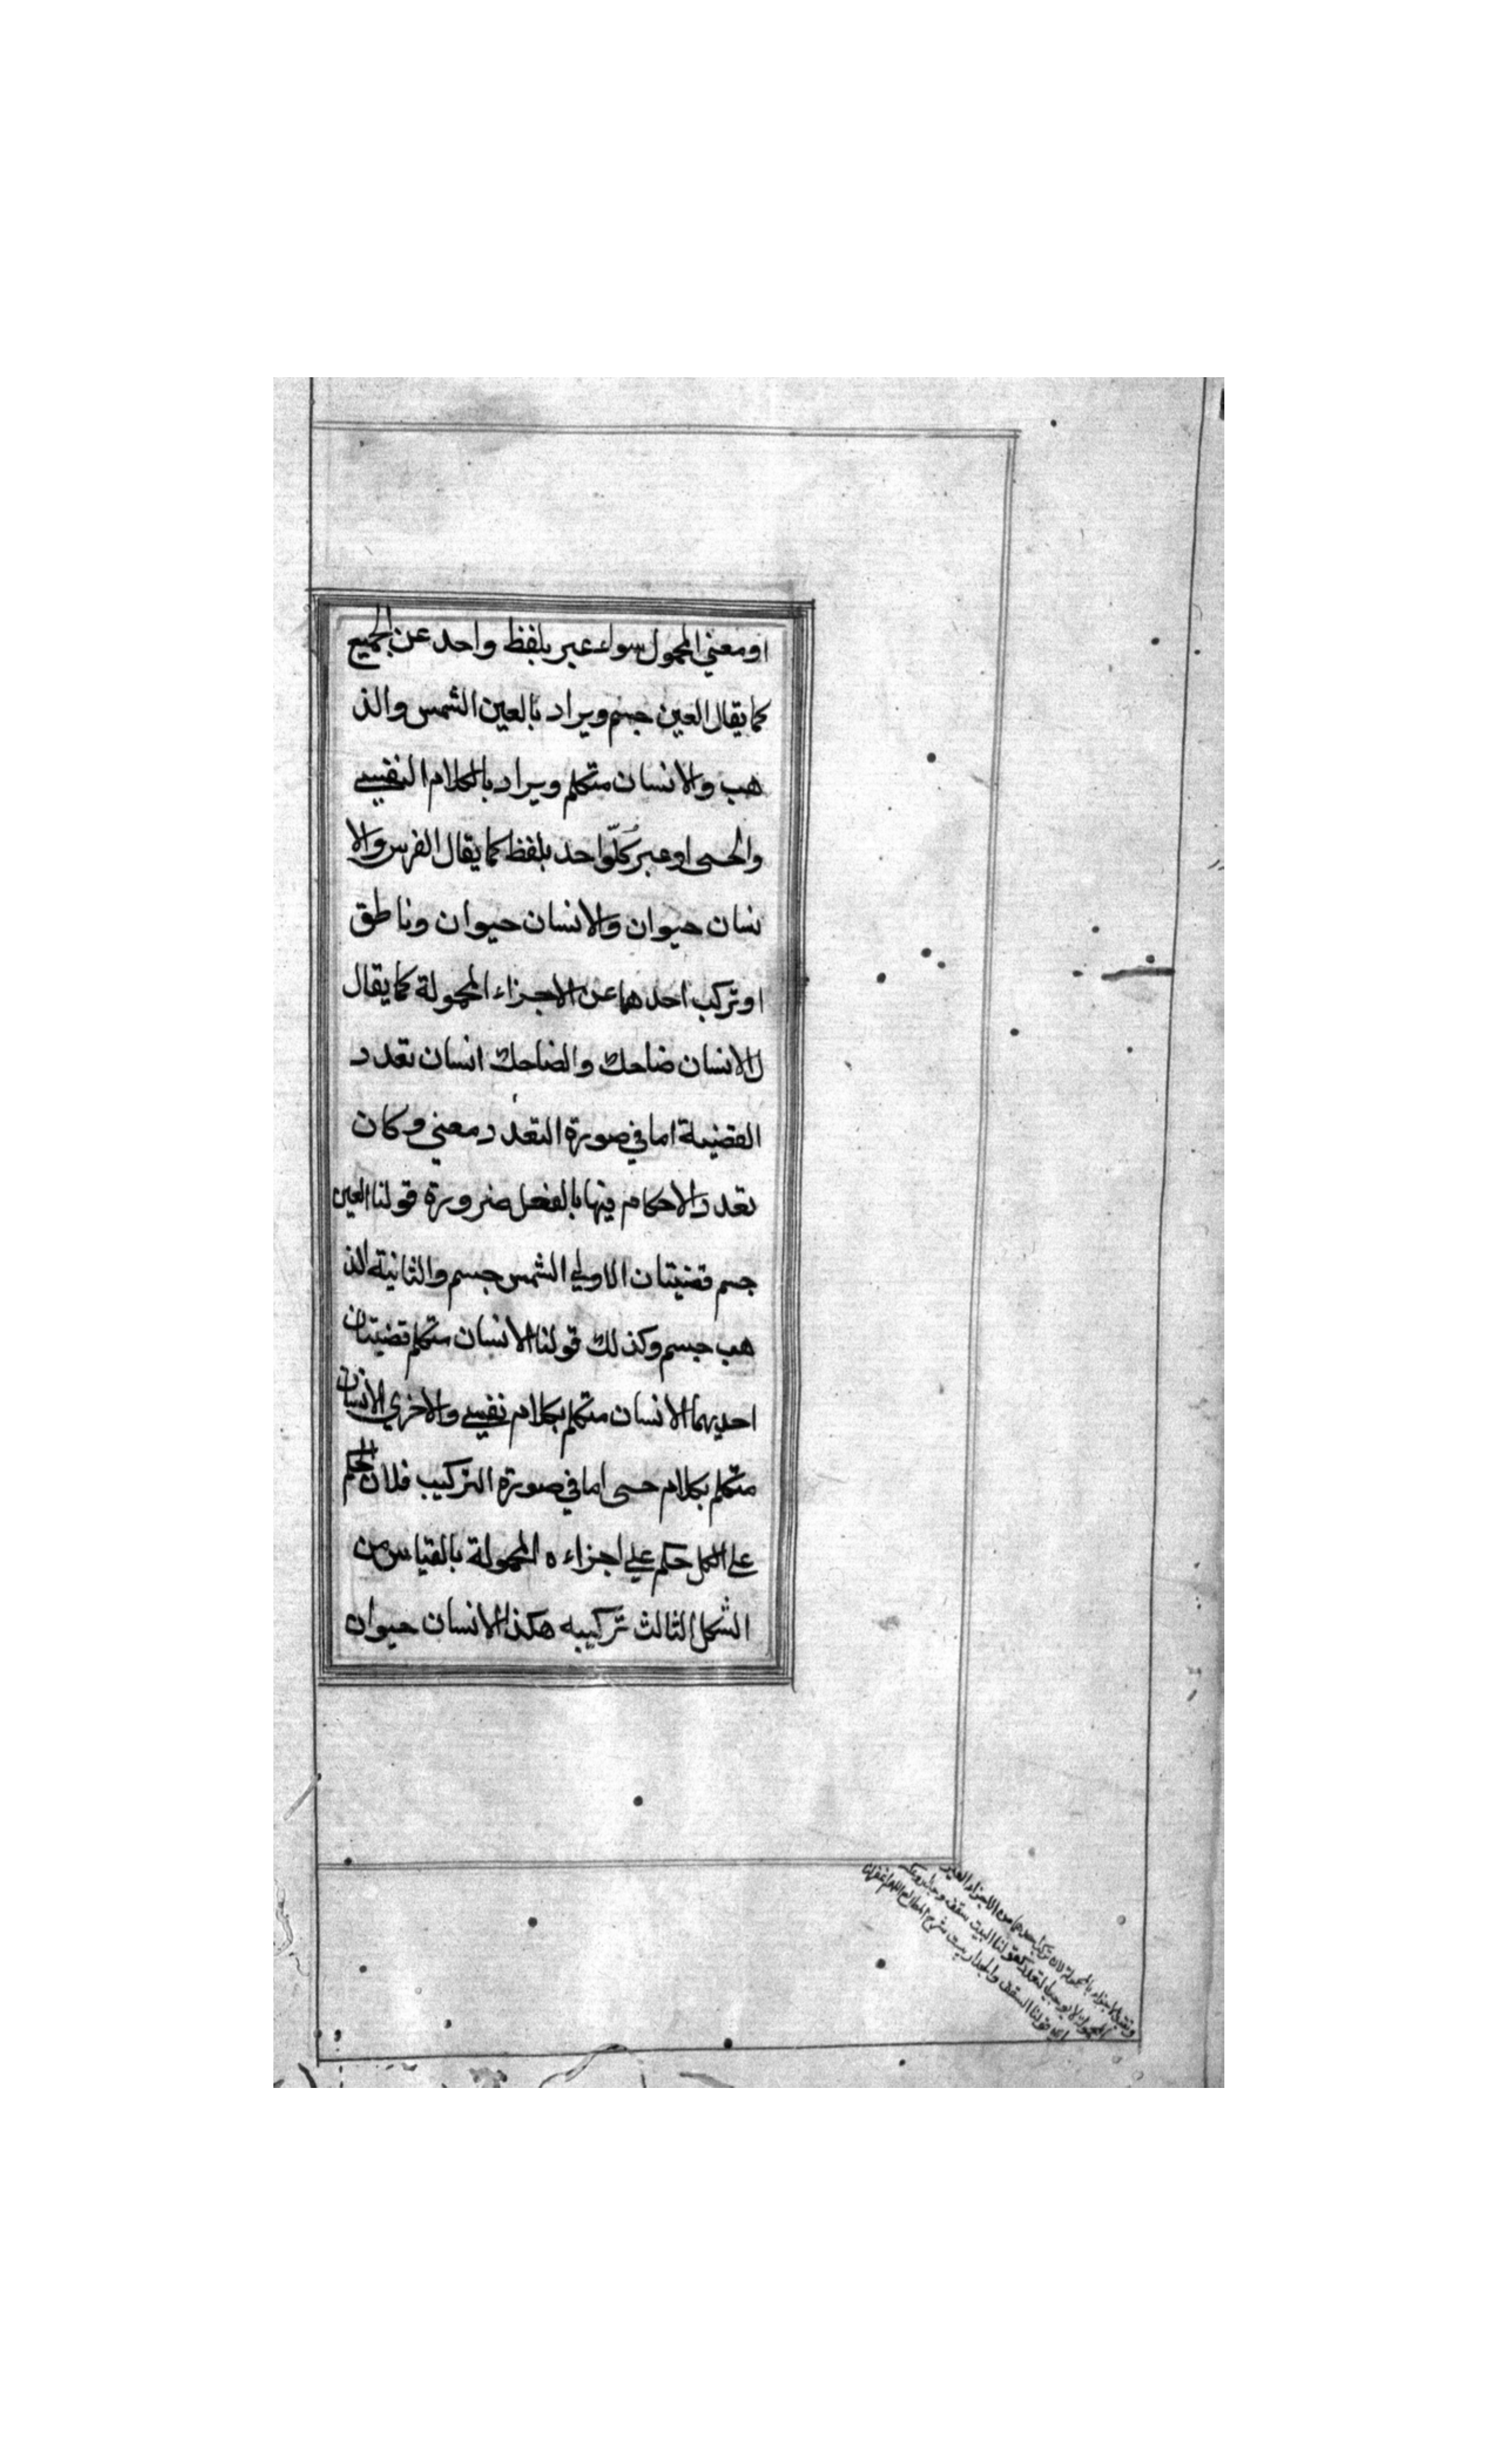 او معني المحمول سواء عبر بلفظ واحد عن الجميع
كما يقال العين جسم ويراد بالعين الشمس والذ
هب والانسان متكلم ويراد بالكلام النفسي
والحسي او عبر كلّ واحد بلفظ كما يقال الفرس والا
نسان حيوان والانسان حيوان وناطق
او تركب احدهما عن الاجزاء المحمولة كما يقال
الانسان ضاحك والضاحك انسان تعدد
القضية اما في صورة التعدد معني وكان
تعدد الاحكام فيها بالفعل ضرورة قولنا العين
جسم قضيتان الاولي الشمس جسم والثانية الذ
هب جسم وكذلك قولنا الانسان متكلم قضيتان
احديهما الانسان متكلم بكلام نفسي والاخري الانسان
متكلم بكلام حسي اما في صورة التركيب فلان الحكم
علي الكل حكم علي اجزاءه المحمولة بالقياس من
الشكل الثالث تركيبه هكذا الانسان حيوان
بالمحمولة لان تركب احدهما من الاجزاء الغير
المحمولة لا يوجب التعدد كقولنا البيت سقف وجدار
قولنا السقف والجدار بيت شرح المطالع